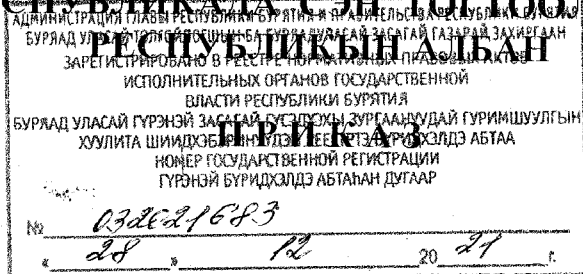 АДМИНИСТРАЦИЯ ГЛАВЫ РЕСПУБЛИКИ БУРЯТИЯ И ПРАВИТЕЛЬСТВА РЕСПУБЛИКИ БУРЯТИЯ
БУРЯАД УЛАСАЙ ЗАСАГАЙ ГАЗАРАЙ ЗАХИРГААН
РЕСПУБЛИКЫН АЛБАН
ЗАРЕГИСТРИРОВАНО В РЕЕСТРЕ НОРМАТИВНЫХ ПРАВОВЫХ АКТОВ
ИСПОЛНИТЕЛЬНЫХ ОРГАНОВ ГОСУДАРСТВЕННОЙ
ВЛАСТИ РЕСПУБЛИКИ БУРЯТИЯ
БУРЯАД УЛАСАЙ ГҮРЭНЭЙ ЗАСАГАЙ ГҮЙСЭДХЭХЫ ЗУРГААНУУДАЙ ГУРИМШУУЛГЫН
ПРИКАЗ
ХУУЛИТА ШИИДХЭБЭРИНҮҮДЭЙ БҮРИДХЭЛДЭ АБТАА
НОМЕР ГОСУДАРСТВЕННОЙ РЕГИСТРАЦИИ
ГҮРЭНЭЙ БҮРИДХЭЛДЭ АБТАҺАН ДУГААР
№ 032621683
« 28 » 12 20 21 г.